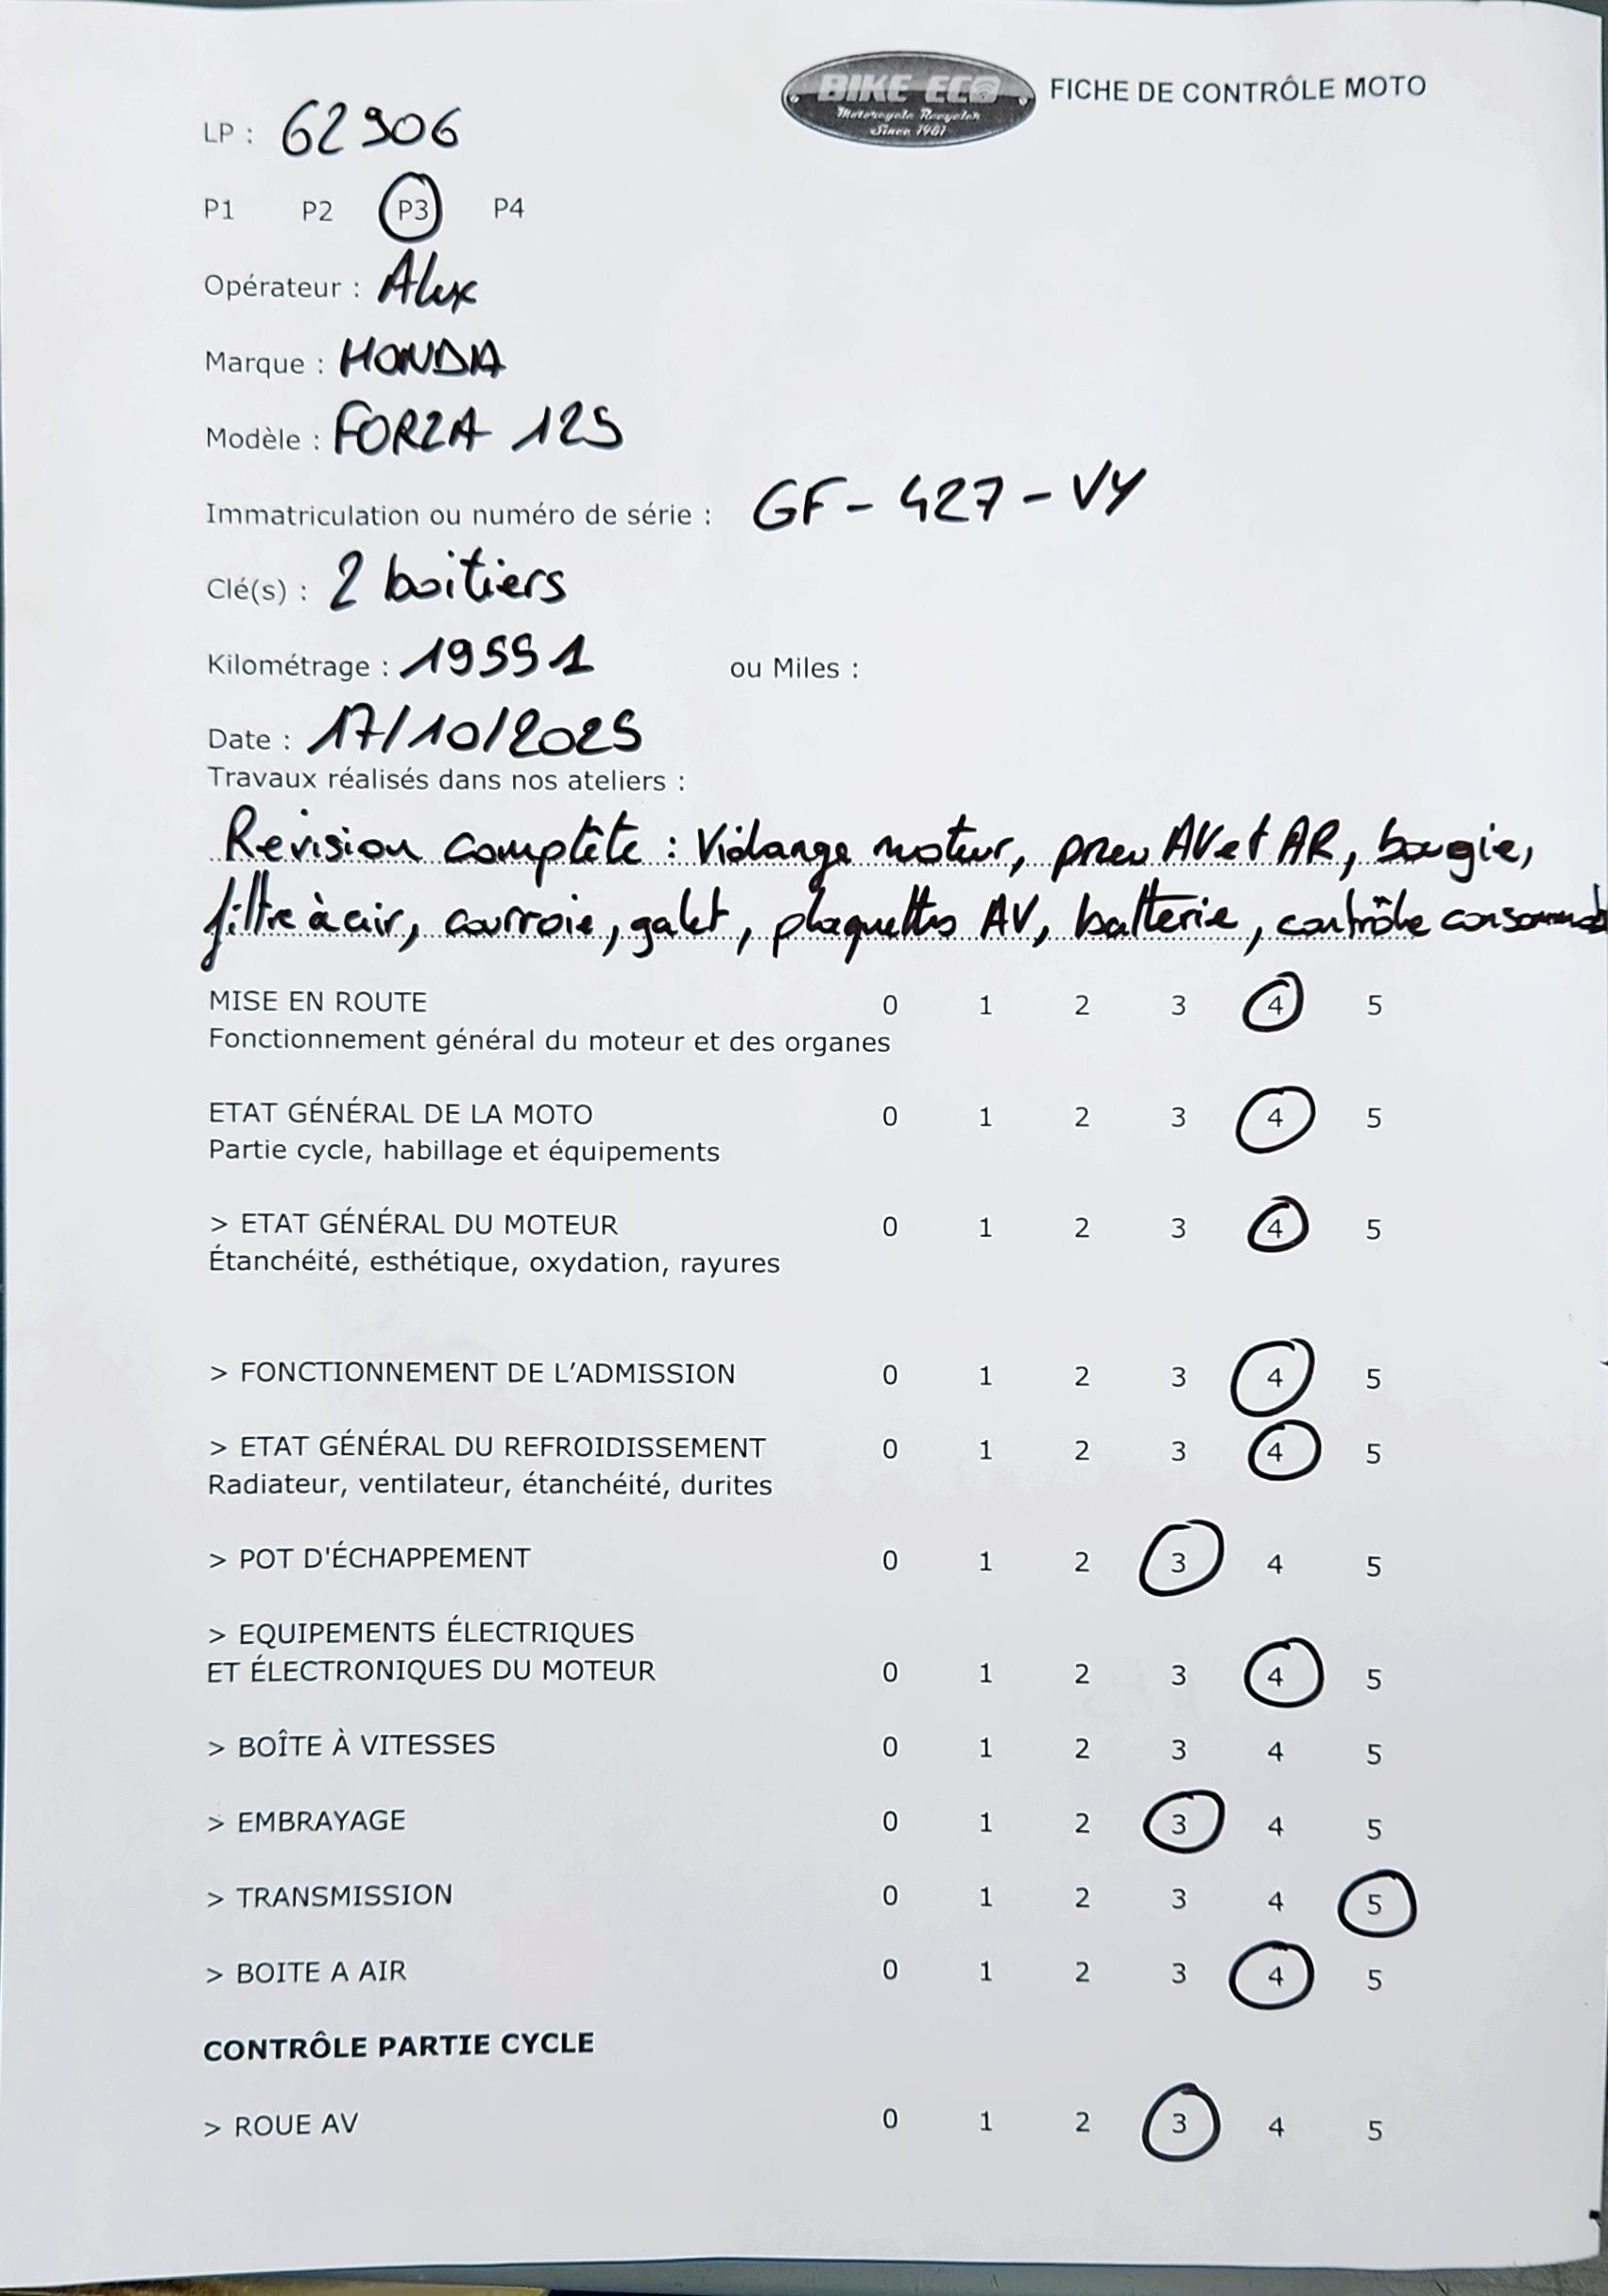 BIKE ECO
Motorcycle Recycler
Since 1981
FICHE DE CONTRÔLE MOTO
LP : 62906
P1 P2 P3 P4
Opérateur : Alex
Marque : HONDA
Modèle : FORZA 125
Immatriculation ou numéro de série : GF-427-VY
Clé(s) : 2 boitiers
Kilométrage : 19551 ou Miles :
Date : 17/10/2025
Travaux réalisés dans nos ateliers :
Revision complète : Vidange moteur, pneu AV et AR, bougie,
filtre à air, courroie, galet, plaquettes AV, batterie, contrôle
MISE EN ROUTE 0 1 2 3 4 5
Fonctionnement général du moteur et des organes
ETAT GÉNÉRAL DE LA MOTO 0 1 2 3 4 5
Partie cycle, habillage et équipements
> ETAT GÉNÉRAL DU MOTEUR 0 1 2 3 4 5
Étanchéité, esthétique, oxydation, rayures
> FONCTIONNEMENT DE L'ADMISSION 0 1 2 3 4 5
> ETAT GÉNÉRAL DU REFROIDISSEMENT 0 1 2 3 4 5
Radiateur, ventilateur, étanchéité, durites
> POT D'ÉCHAPPEMENT 0 1 2 3 4 5
> EQUIPEMENTS ÉLECTRIQUES
ET ÉLECTRONIQUES DU MOTEUR 0 1 2 3 4 5
> BOÎTE À VITESSES 0 1 2 3 4 5
> EMBRAYAGE 0 1 2 3 4 5
> TRANSMISSION 0 1 2 3 4 5
> BOITE A AIR 0 1 2 3 4 5
CONTRÔLE PARTIE CYCLE
> ROUE AV 0 1 2 3 4 5